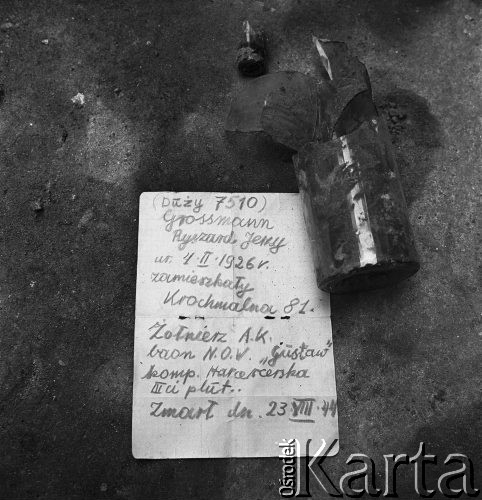 (Duży 7510)
Grossmann
Ryszard Jerzy
ur. 4·II·1926r.
zamieszkały
Krochmalna 81.
Żołnierz A.K.
baon N.O.W. „Gustaw"
komp. Harcerska
III ci plut..
Zmarł dn. 23·VIII·44
Ośrodek
Karta